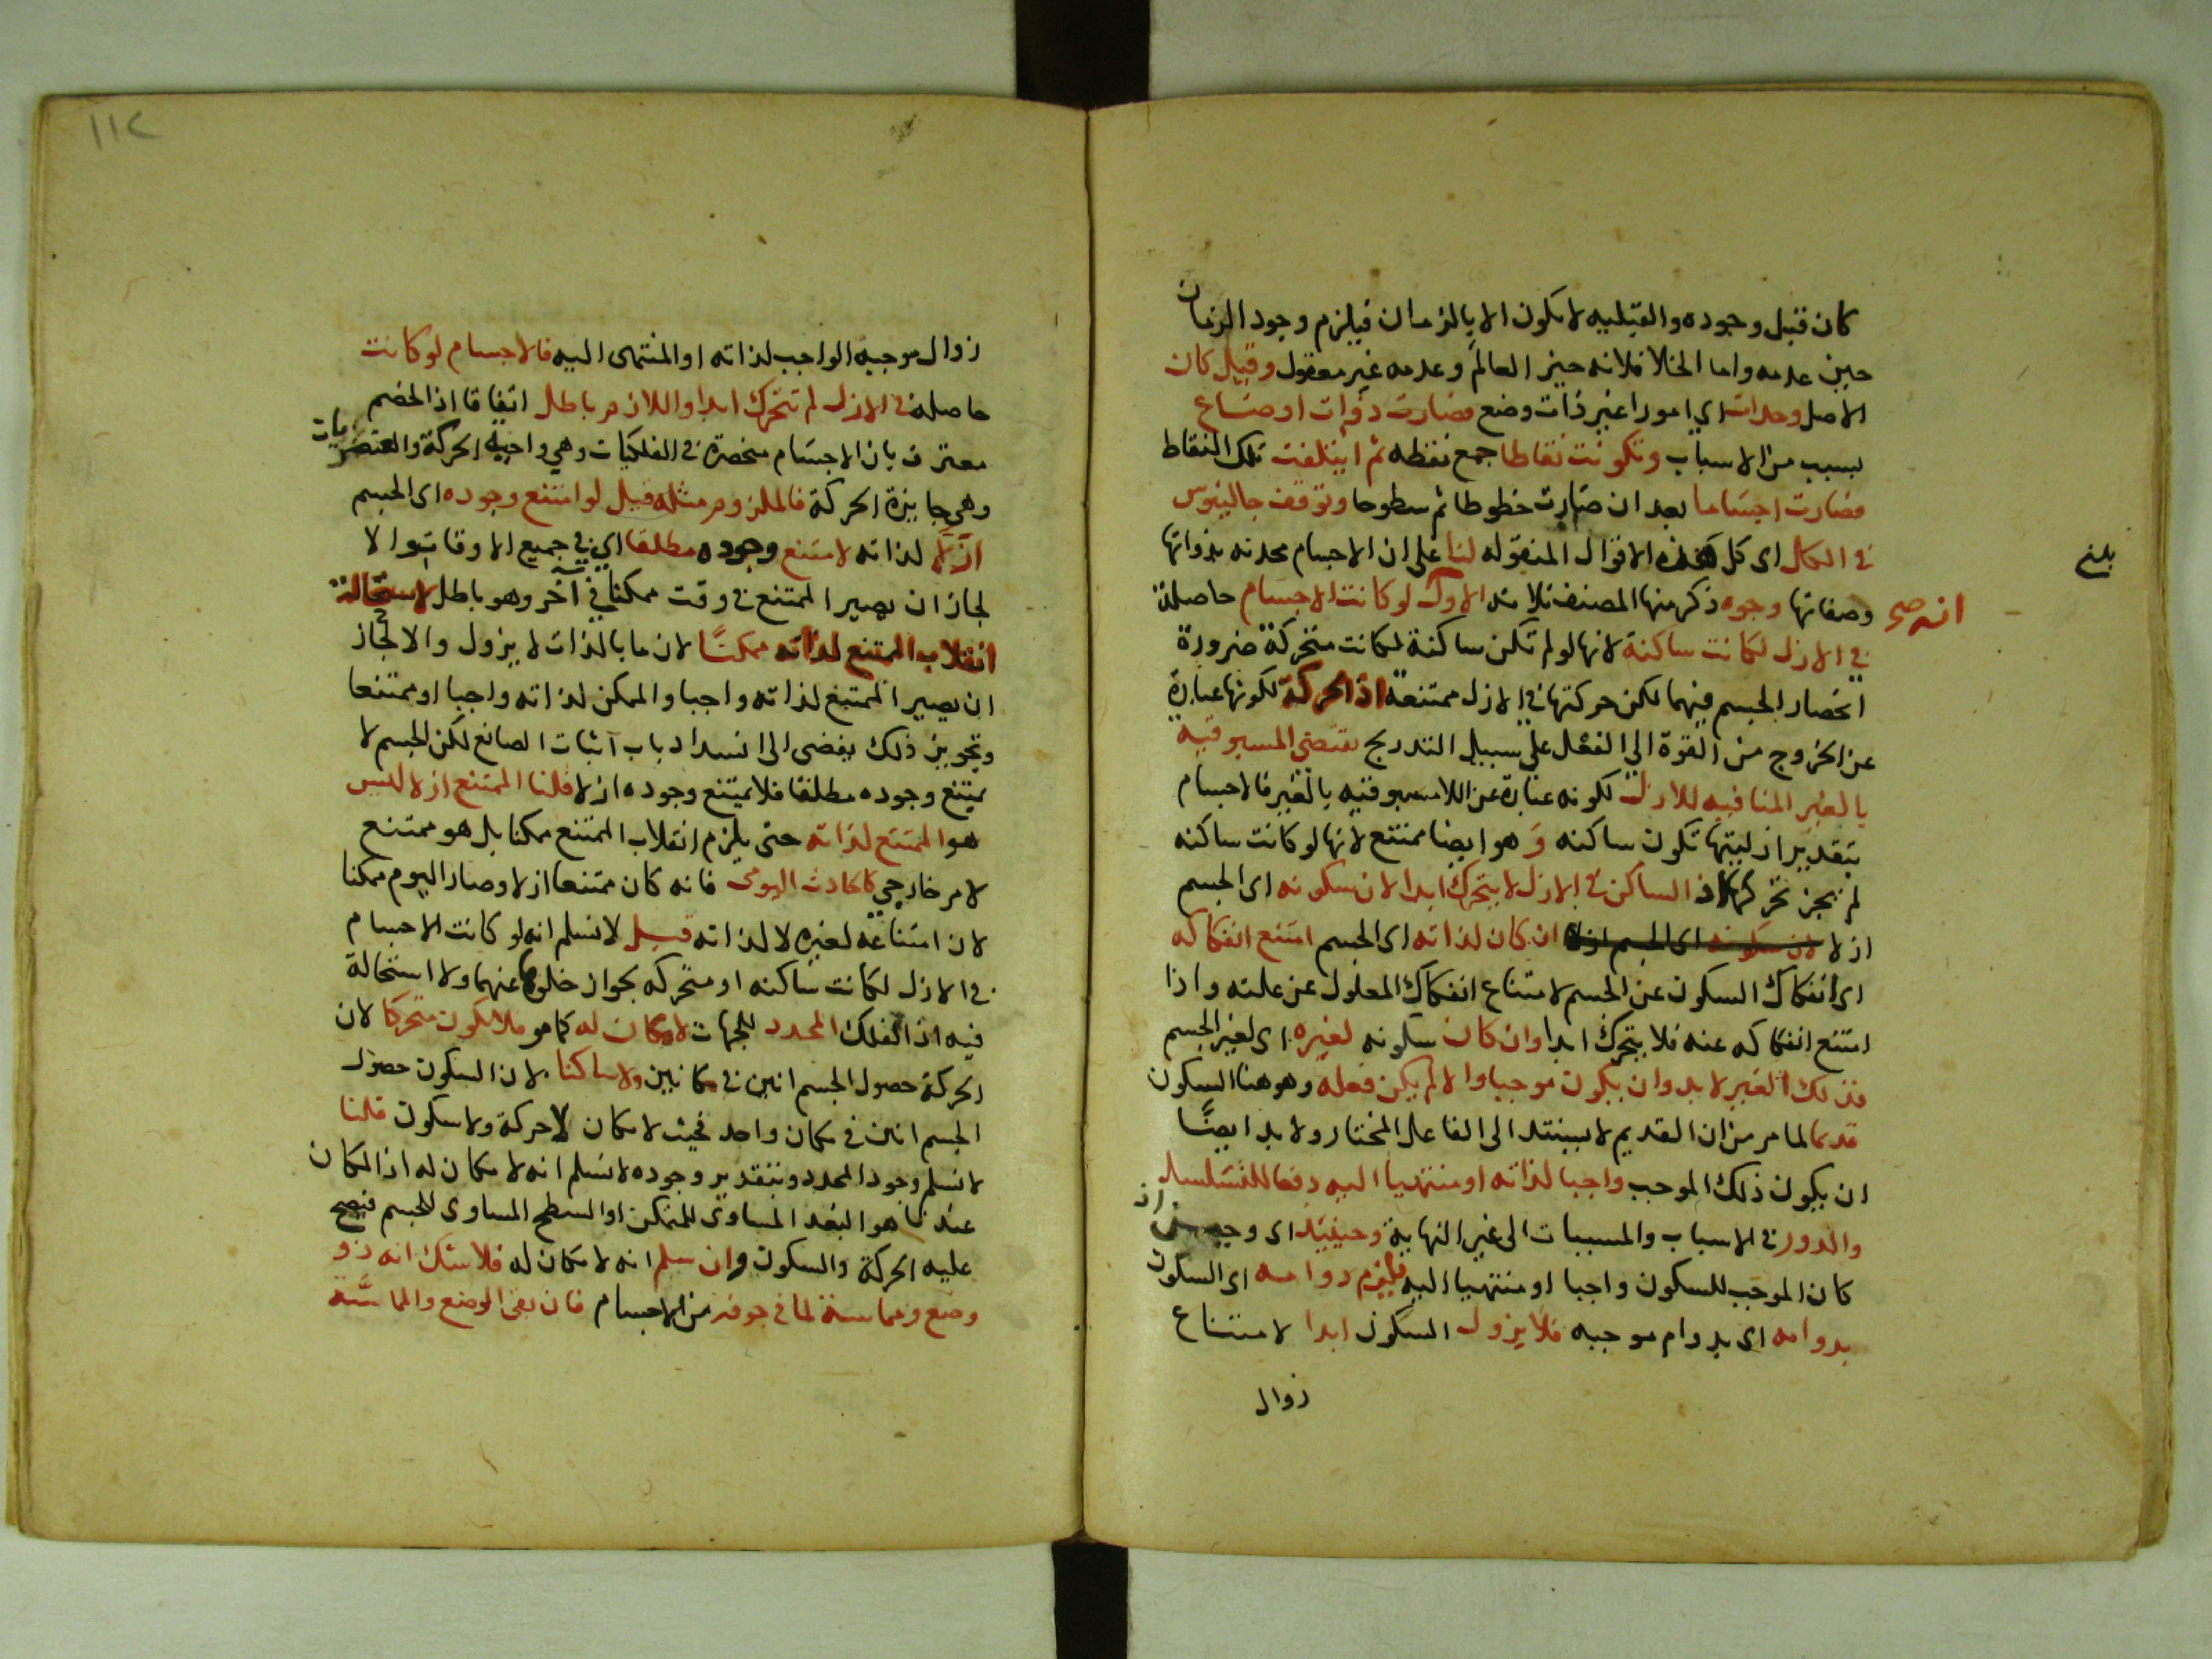 كان قبل وجوده والقبليه لا يكون الا بالزمان فيلزم وجود الزمان
حين عدمه واما الخلا فلانه حيز العالم وعدمه غير معقول وقيل كان
الاصل وحدات اي امورا غير ذات وضع فصارت ذوات اوضاع
بسبب من الاسباب وتكونت نقاطا جمع نقطه ثم ايتلفت تلك النقاط
فصارت اجساما بعد ان صارت خطوطا ثم سطوحا وتوقف جالينوس
في الكل اى كل هذه الاقوال المنقوله لنا على ان الاجسام محدثه بذواتها
بلغ
وصفاتها وجوه ذكر منها المصنف ثلاثه الاول لو كانت الاجسام حاصلة
في الازل لكانت ساكنة لانها لو لم تكن ساكنة لكانت متحركة ضرورة
انحصار الجسم فيهما لكن حركتها في الازل ممتنعة اذ الحركة لكونها عبارة
عن الخروج من القوة الى الفعل على سبيل التدريج تقتضي المسبوقية
بالغير المنافيه للازل لكونه عبارة عن اللامسبوقيه بالغير فالاجسام
بتقدير ازليتها تكون ساكنه و هو ايضا ممتنع لانها لو كانت ساكنه
لم يجز تحركها اذ الساكن في الازل لا يتحرك ابدا لان سكونه اى الجسم
ازلا لان سكونه اى الجسم ازلا ان كان لذاته اى الجسم امتنع انفكاكه
اى انفكاك السكون عن الجسم لامتناع انفكاك المعلول عن علته واذا
امتنع انفكاكه عنه فلا يتحرك ابدا وان كان سكونه لغيره اى لغير الجسم
فذلك الغير لا بد وان يكون موجبا والا لم يكن فعله وهو هنا السكون
قديما لما مر من ان القديم لا يستند الى الفاعل المختار ولا بد ايضًا
ان يكون ذلك الموجب واجبا لذاته او منتهيا اليه دفعا للتسلسل
والدور في الاسباب والمسببات الى غير النهاية وحينئذ اى وحين اذ
كان الموجب للسكون واجبا او منتهيا اليه فيلزم دوامه اى السكون
بدوامه اى بدوام موجبه فلا يزول السكون ابدا لامتناع
زوال
١١٢
زوال موجبه الواجب لذاته او المنتهى اليه فالاجسام لو كانت
حاصلة في الازل لم تتحرك ابدا واللازم باطل اتفاقا اذ الخصم
معترف بان الاجسام منحصرة في الفلكيات وهي واجبة الحركة والعنصريات
وهي جايزة الحركة فالملزوم مثله قيل لو امتنع وجوده اى الجسم
ازلا لذاته لامتنع وجوده مطلقا اي في جميع الاوقات والا
لجاز ان يصير الممتنع في وقت ممكنا في آخر وهو باطل لاستحالة
انقلاب الممتنع لذاته ممكنًا لان ما بالذات لا يزول والا لجاز
ان يصير الممتنع لذاته واجبا والممكن لذاته واجبا او ممتنعا
وتجويز ذلك يفضى الى انسداد باب اثبات الصانع لكن الجسم لا
يمتنع وجوده مطلقا فلا يمتنع وجوده ازلا قلنا الممتنع ازلا ليس
هو الممتنع لذاته حتى يلزم انقلاب الممتنع ممكنا بل هو ممتنع
لامر خارجي كالحادث اليومى فانه كان ممتنعا ازلا وصار اليوم ممكنا
لان امتناعه لغيره لا لذاته قيل لا نسلم انه لو كانت الاجسام
في الازل لكانت ساكنه او متحركه بجواز خلوها عنهما ولا استحالة
فيه اذ الفلك المحدد للجهات لا مكان له كما هو فلا يكون متحركا لان
الحركة حصول الجسم انين في مكانين ولا ساكنا لان السكون حصول
الجسم انين في مكان واحد فحيث لا مكان لا حركة ولا سكون قلنا
لا نسلم وجود المحدد وبتقدير وجوده لا نسلم انه لا مكان له اذ المكان
عندنا هو البعد المساوى للمتمكن او السطح المساوى للجسم فيصح
عليه الحركة والسكون وان سلم انه لا مكان له فلا شك انه ذو
وضع ومماسة لما في جوفه من الاجسام فان بقى الوضع والمماسَّة